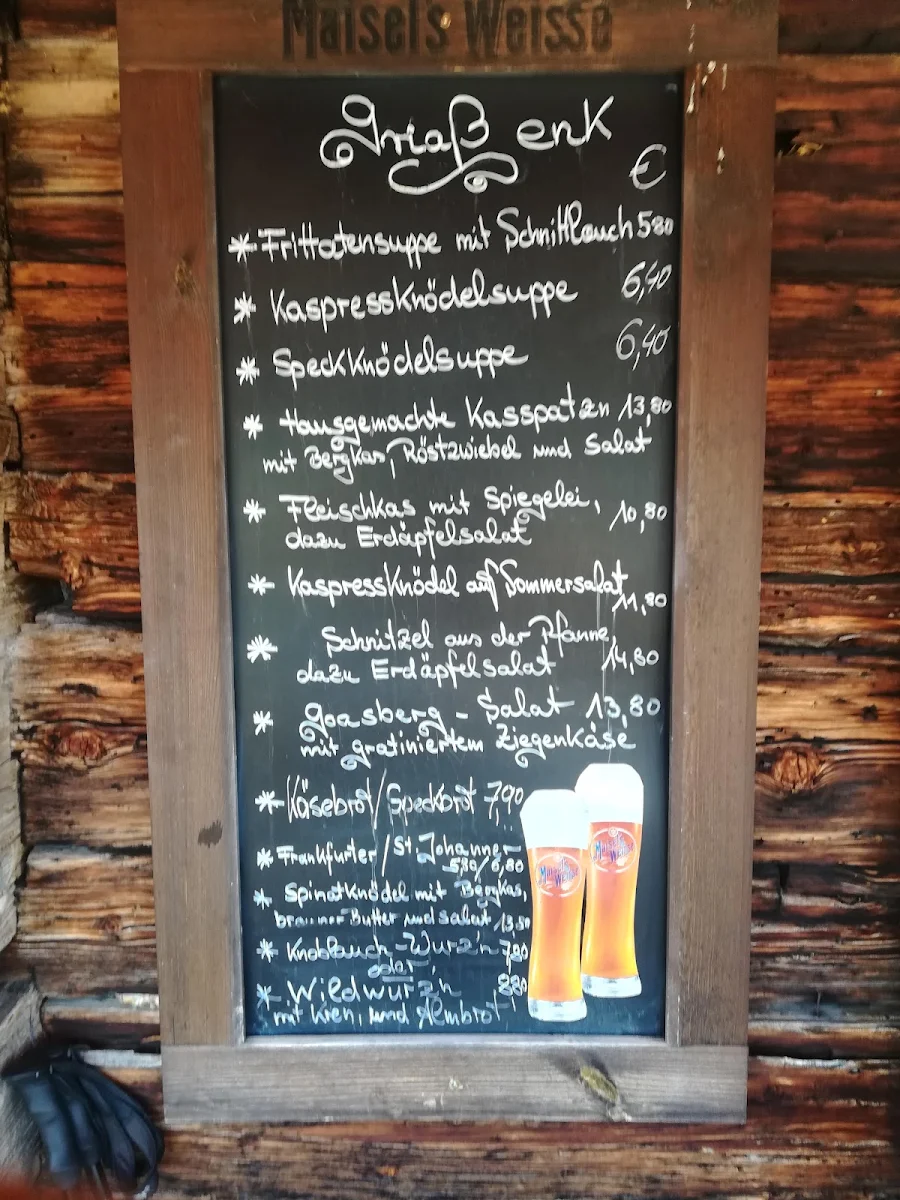 Maisel's Weisse
Griaß enk
€
* Frittatensuppe mit Schnittlauch 5 80
* Kaspressknödelsuppe 6,40
* Speckknödelsuppe 6,40
* Hausgemachte Kasspatzn 13,80
mit Bergkas, Röstzwiebel und Salat
* Fleischkas mit Spiegelei,
dazu Erdäpfelsalat 10,80
* Kaspressknödel auf Sommersalat
11,80
* Schnitzel aus der Pfanne,
dazu Erdäpfelsalat 14,80
* Goasberg - Salat 13,80
mit gratiniertem Ziegenkäse
* Käsebrot/Speckbrot 7,90
* Frankfurter/St. Johanner
5,80/6,80
* Spinatknödel mit Bergkas,
brauner Butter und Salat 13,80
* Knoblauch-Wurz'n 7 80
oder
* Wildwurz'n 8 80
mit Kren, und Almbrot
Maisel's Weisse
Maisel's Weisse